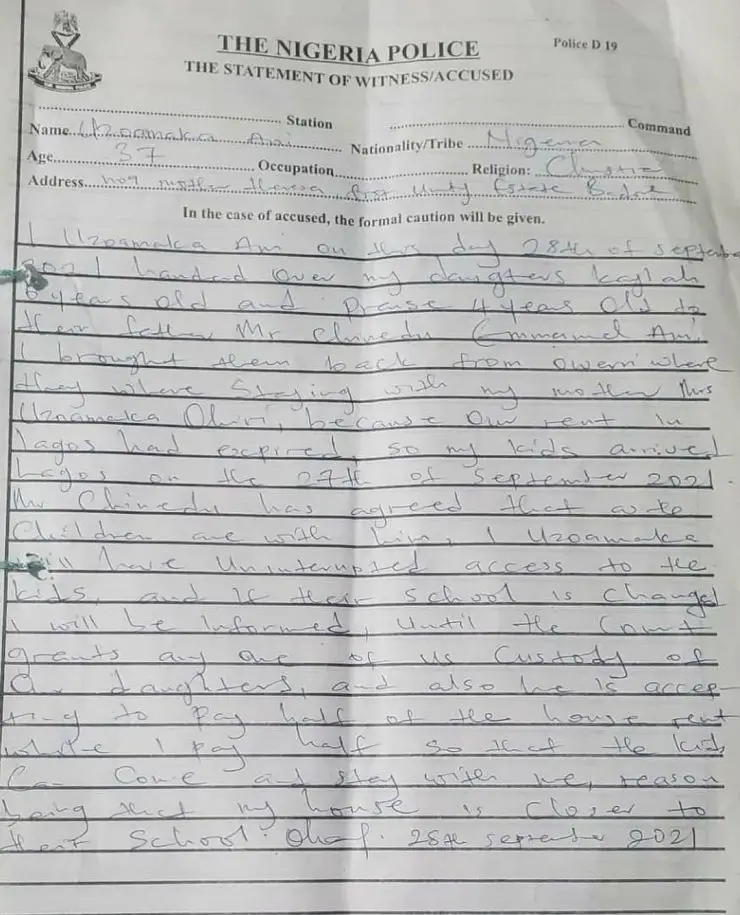 THE NIGERIA POLICE
Police D 19
THE STATEMENT OF WITNESS/ACCUSED
Station
Command
Name Uzoamaka Ani Nationality/Tribe Nigeria
Age 37 Occupation Religion: Christian
Address No 9 mother theresa first Unity Estate Badore
In the case of accused, the formal caution will be given.
I Uzoamaka Ani on this day 28th of september
2021 handed over my daugters kaylah
6 years old and Praise 4 years old to
their father Mr Chinedu Emmanuel Ani.
I brought them back from owerri where
they where staying with my mother Mrs
Uzoamaka Ohiri, because our rent in
lagos had expired, so my kids arrived
Lagos on the 27th of September 2021.
Mr Chinedu has agreed that as the
Children are with him, I Uzoamaka
will have Uninterupted access to the
kids, and if their school is changed
I will be Informed, Until the Court
grants any one of us Custody of
our daughters, and also he is accep-
ting to pay half of the house rent
while I pay half so that the kids
can come and stay with me, reason
being that my house is closer to
their school. 28th september 2021